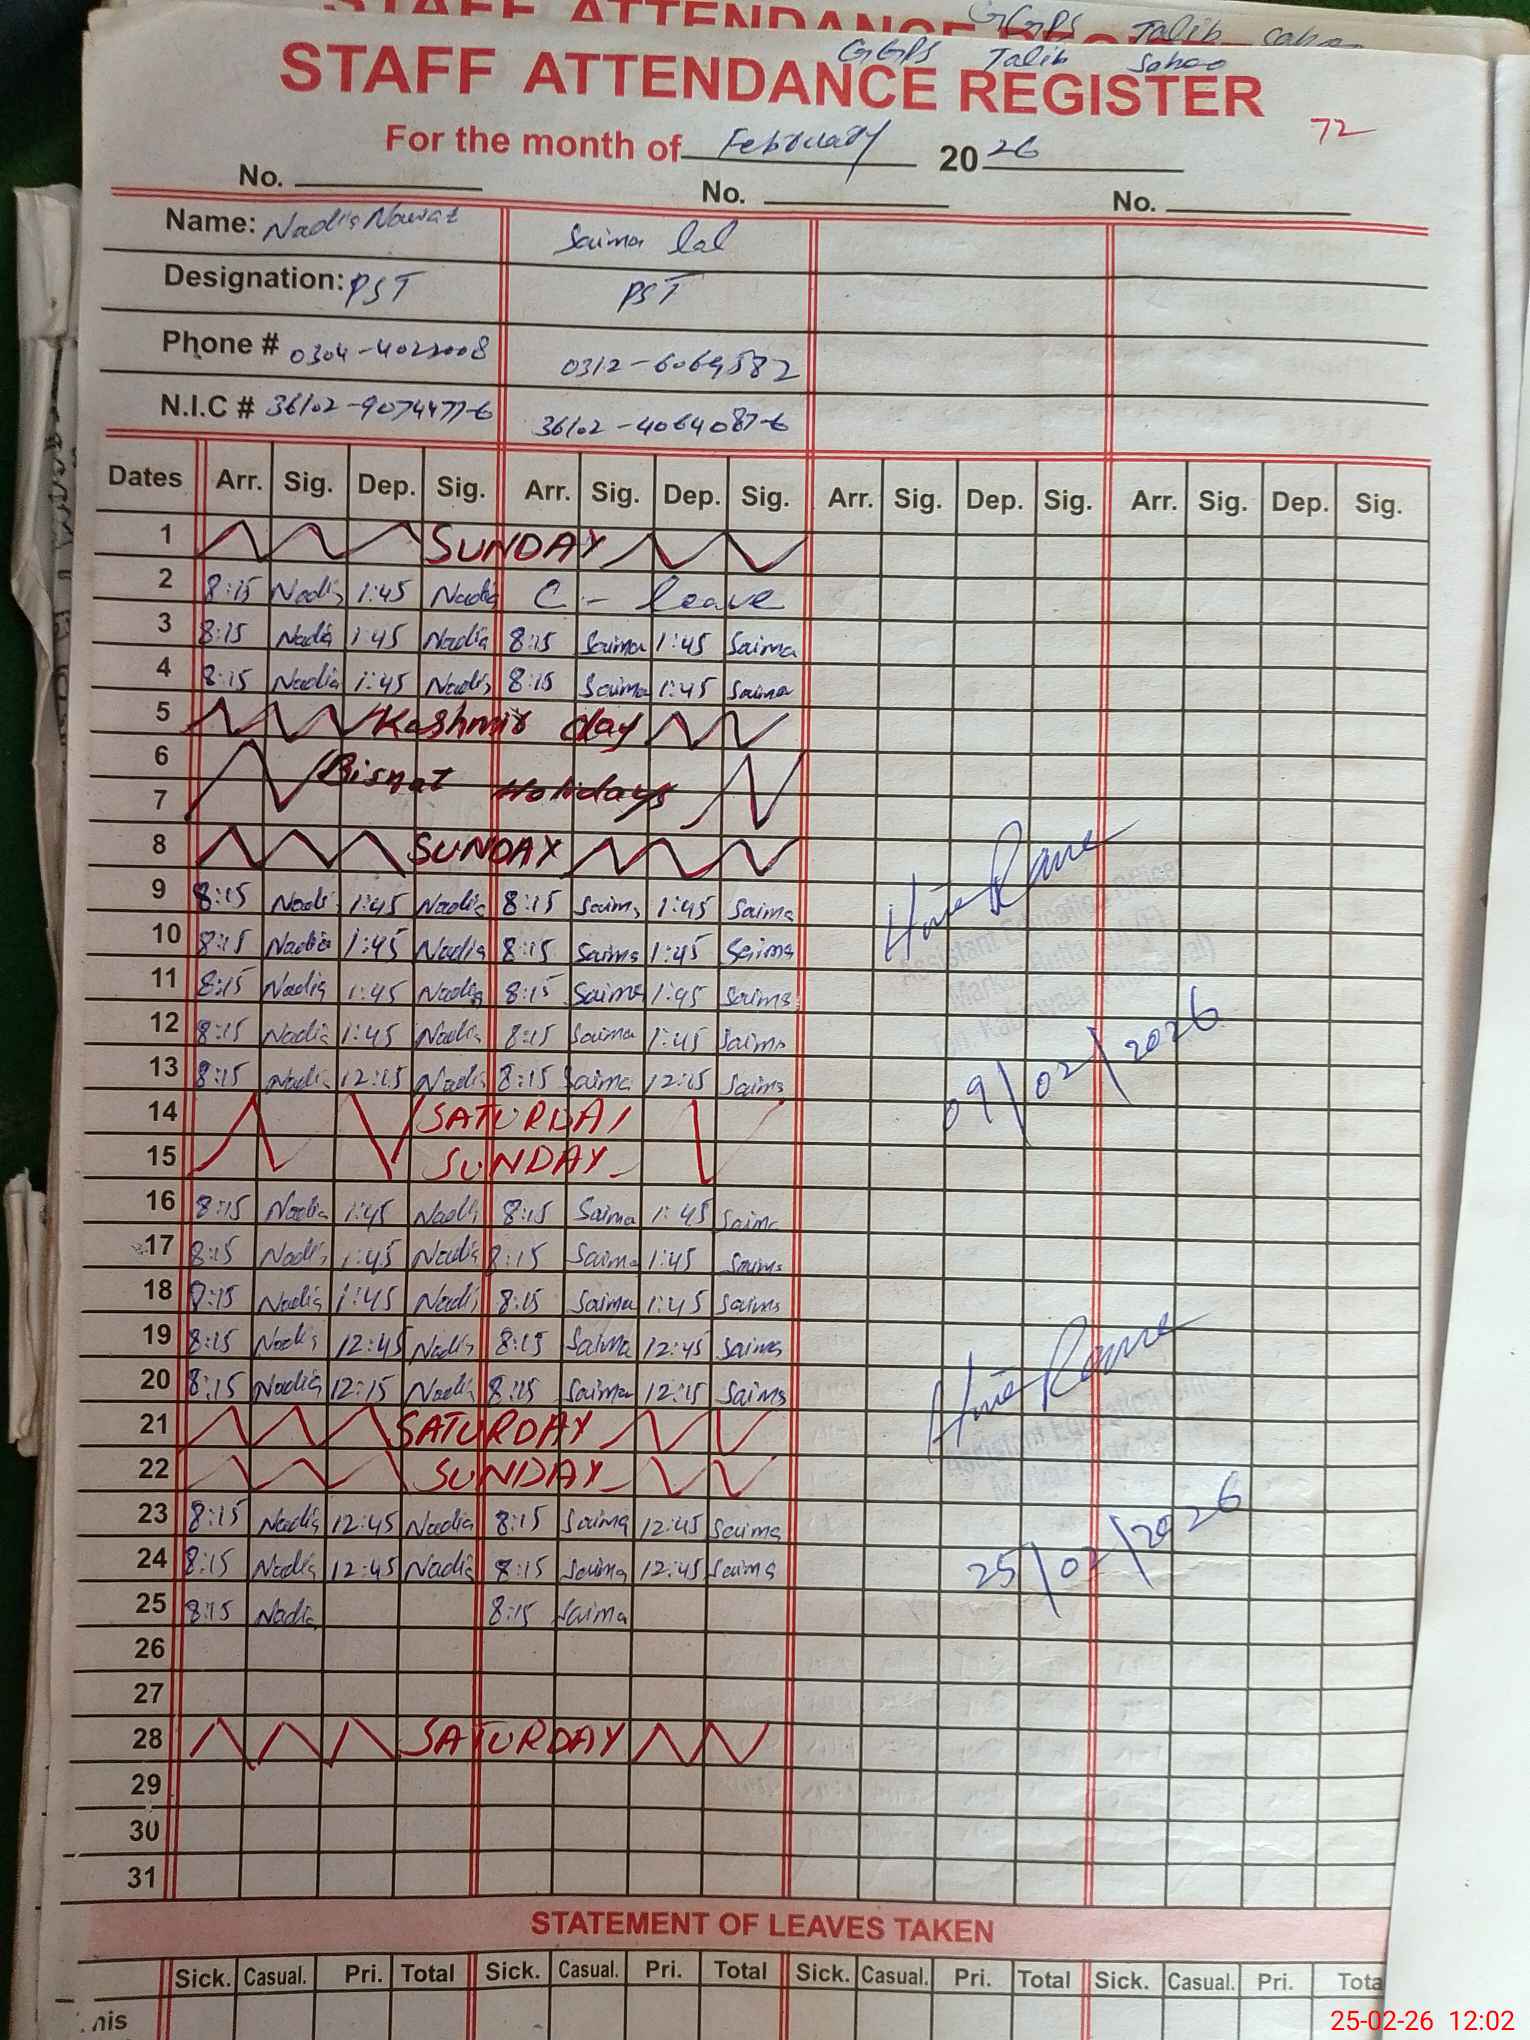 STAFF ATTENDANCE
GGPS Talib
GGPS Talib Sahoo
STAFF ATTENDANCE REGISTER
72
For the month of February 2026
No. No. No.
Name: Nadia Nawaz Saima Lal
Designation: PST PST
Phone # 0304-4022008 0312-6069582
N.I.C # 36102-9074477-6 36102-4064087-6
Dates Arr. Sig. Dep. Sig. Arr. Sig. Dep. Sig. Arr. Sig. Dep. Sig. Arr. Sig. Dep. Sig.
1 SUNDAY
2 8:15 Nadia 1:45 Nadia C - leave
3 8:15 Nadia 1:45 Nadia 8:15 Saima 1:45 Saima
4 8:15 Nadia 1:45 Nadia 8:15 Saima 1:45 Saima
5 Kashmir day
6
Bisnat Holidays
7
8 SUNDAY
9 8:15 Nadi 1:45 Nadia 8:15 Saima 1:45 Saima
10 8:15 Nadia 1:45 Nadia 8:15 Saima 1:45 Saima
11 8:15 Nadia 1:45 Nadia 8:15 Saima 1:45 Saima
12 8:15 Nadia 1:45 Nadia 8:15 Saima 1:45 Saima
09/02/2026
13 8:15 Nadia 12:15 Nadia 8:15 Saima 12:15 Saima
14 SATURDAY
15 SUNDAY
16 8:15 Nadia 1:45 Nadia 8:15 Saima 1:45 Saima
17 8:15 Nadia 1:45 Nadia 8:15 Saima 1:45 Saima
18 8:15 Nadia 1:45 Nadia 8:15 Saima 1:45 Saima
19 8:15 Nadia 12:45 Nadia 8:15 Saima 12:45 Saima
20 8:15 Nadia 12:15 Nadia 8:15 Saima 12:15 Saima
21 SATURDAY
22 SUNDAY
23 8:15 Nadia 12:45 Nadia 8:15 Saima 12:45 Saima
24 8:15 Nadia 12:45 Nadia 8:15 Saima 12:45 Saima
25/02/2026
25 8:15 Nadia 8:15 Saima
26
27
28 SATURDAY
29
30
31
STATEMENT OF LEAVES TAKEN
Sick. Casual. Pri. Total Sick. Casual. Pri. Total Sick. Casual. Pri. Total Sick. Casual. Pri. Tota
his
25-02-26 12:02